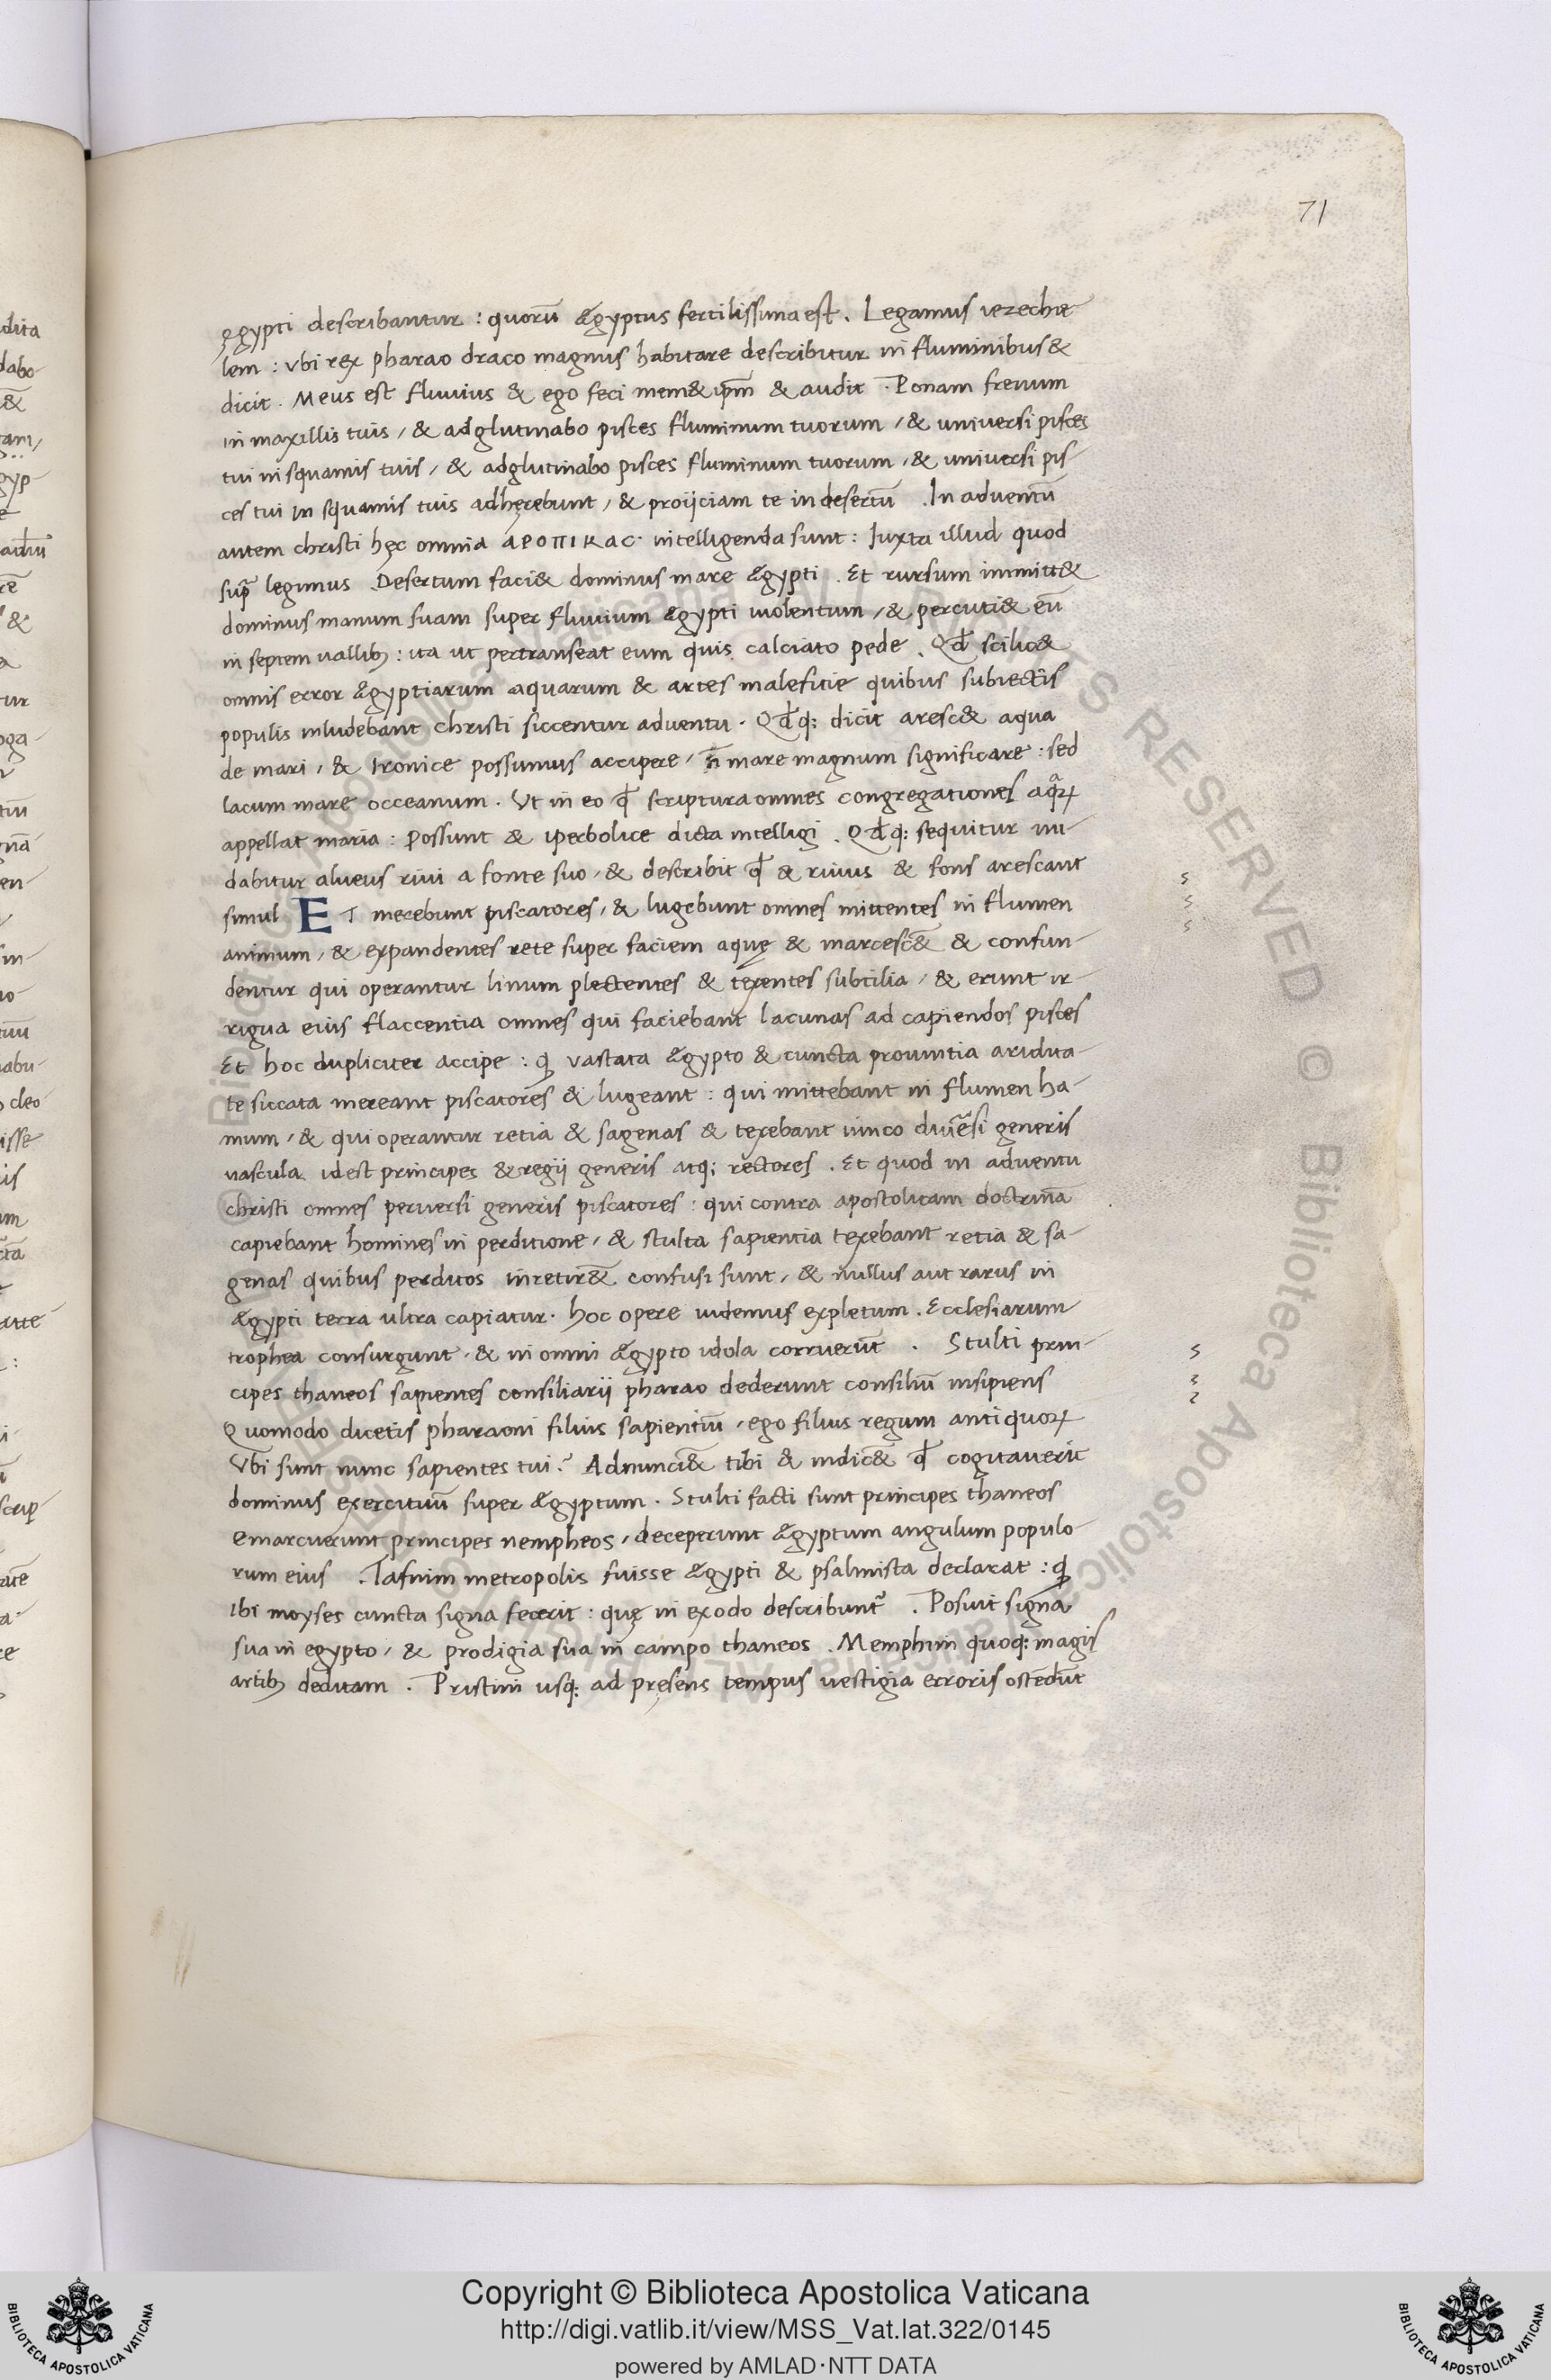 71
ęgypti describantur : quorū ægyptus fertilissima est . Legamus iezechie-
lem : ubi rex pharao draco magnus habitare describitur in fluminibus &
dicit . Meus est fluvius & ego feci mem& ip̄m & audit . Ponam frenum
in maxillis tuis / & adglutinabo pisces fluminum tuorum / & universi pisces
tui in squamis tuis / & adglutinabo pisces fluminum tuorum / & universi pis-
ces tui in squamis tuis adhęrebunt / & proijciam te in desertū . In adventū
autem christi hęc omnia ΑΡΟΠΙΚΑϹ· intelligenda sunt : Iuxta illud quod
sup̄ legimus . Desertum faci& dominus mare ægypti . Et rursum immitt&
dominus manum suam super fluvium ægypti violentum / & percuti& eū
in septem vallib; : ita ut pertranseat eum quis calciato pede . Qd̄ scilic&
omnis error ægyptiarum aquarum & artes maleficie quibus subiectis
populis inludebant christi siccentur adventu . Qd̄q: dicit aresc& aqua
de mari / & Ironice possumus accipere / n̄ mare magnum significare : sed
lacum mare occeanum . Ut in eo qd̄ scriptura omnes congregationes aq̄rꝝ
appellat maria : Possunt & iperbolice dicta intelligi . Qd̄q: sequitur nu-
dabitur alveus rivi a fonte suo / & describit qd̄ & rivus & fons arescant
simul ET merebunt piscatores / & lugebunt omnes mittentes in flumen
animum / & expandentes rete super faciem aquę & marcesc&̄ & confun-
dentur qui operantur linum plectentes & texentes subtilia / & erunt ir-
rigua eius flaccentia omnes qui faciebant lacunas ad capiendos pisces
Et hoc dupliciter accipe : ꝙ vastata ægypto & cuncta provintia aridita-
te siccata mereant piscatores & lugeant : qui mittebant in flumen ha-
mum / & qui operantur retia & sagenas & texebant iunco diūesi generis
vascula idest principes & regij generis atq; rectores . Et quod in adventu
christi omnes perversi generis piscatores : qui contra apostolicam doctrinā
capiebant homines in perditione / & stulta sapientia texebant retia & sa-
genas quibus perditos inretir&̄ confusi sunt / & nullus aut rarus in
ægypti terra ultra capiatur . hoc opere videmus expletum . Ecclesiarum
trophea consurgunt / & in omni ægypto idola corruerūt . Stulti prin-
cipes thaneos sapientes consiliarij pharao dederunt consiliū insipiens
Quomodo dicetis pharaoni filius sapientiū / ego filius regum antiquoꝝ
Ubi sunt nunc sapientes tui ? Adnunci&̄ tibi & indic&̄ qd̄ cogitaverit
dominus exercituū super ægyptum . Stulti facti sunt principes thaneos
emarcuerunt principes nempheos / deceperunt ægyptum angulum populo-
rum eius . Tafnim metropolis fuisse ægypti & psalmista declarat : ꝙ
ibi moyses cuncta signa fecerit : quę in exodo describunt᷑ . Posuit signa
sua in egypto / & prodigia sua in campo thaneos . Memphim quoq: magis
artib; deditam . Pristini usq: ad pręsens tempus vestigia erroris ostēdūt
Copyright © Biblioteca Apostolica Vaticana
http://digi.vatlib.it/view/MSS_Vat.lat.322/0145
powered by AMLAD·NTT DATA